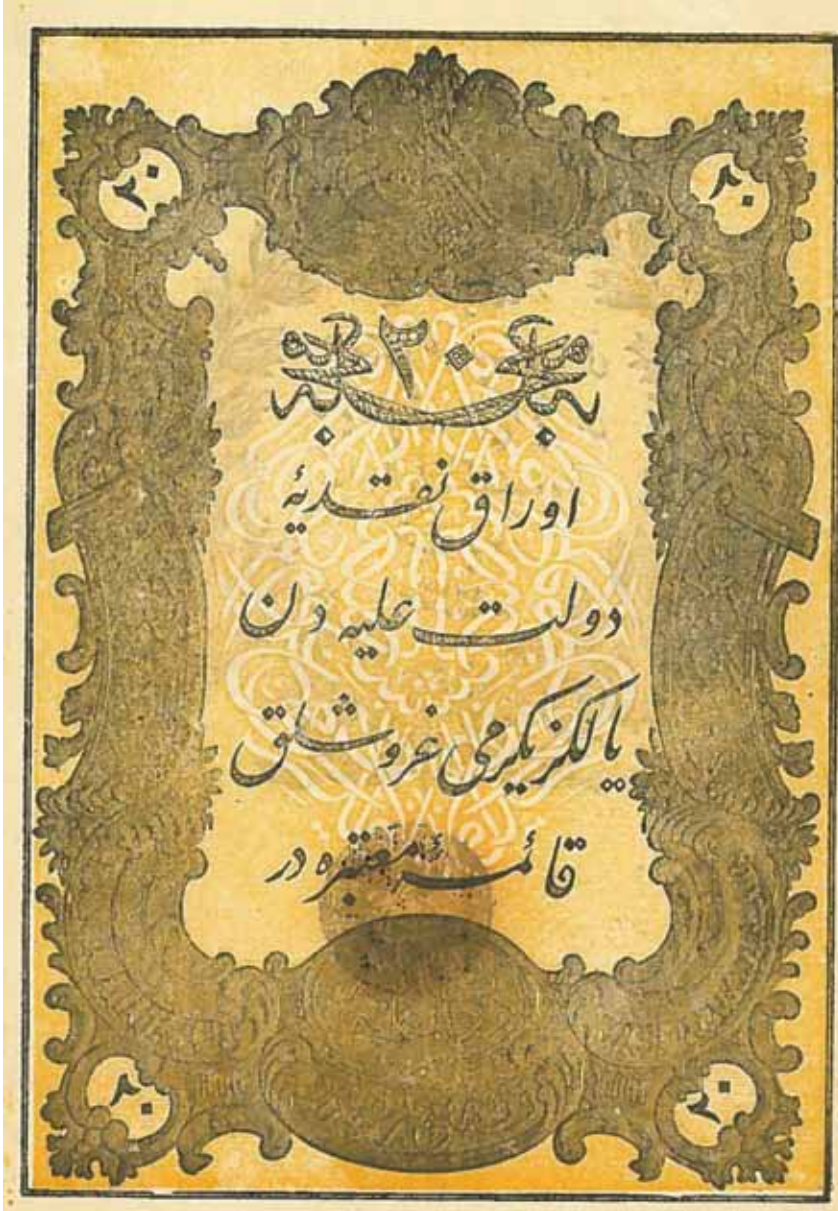 ٢٠ ٢٠
٢٠
اوراق نقديۀ
دولت عليه دن
يالكز يكرمى غروشلق
قائمۀ معتبره در
٢٠ ٢٠